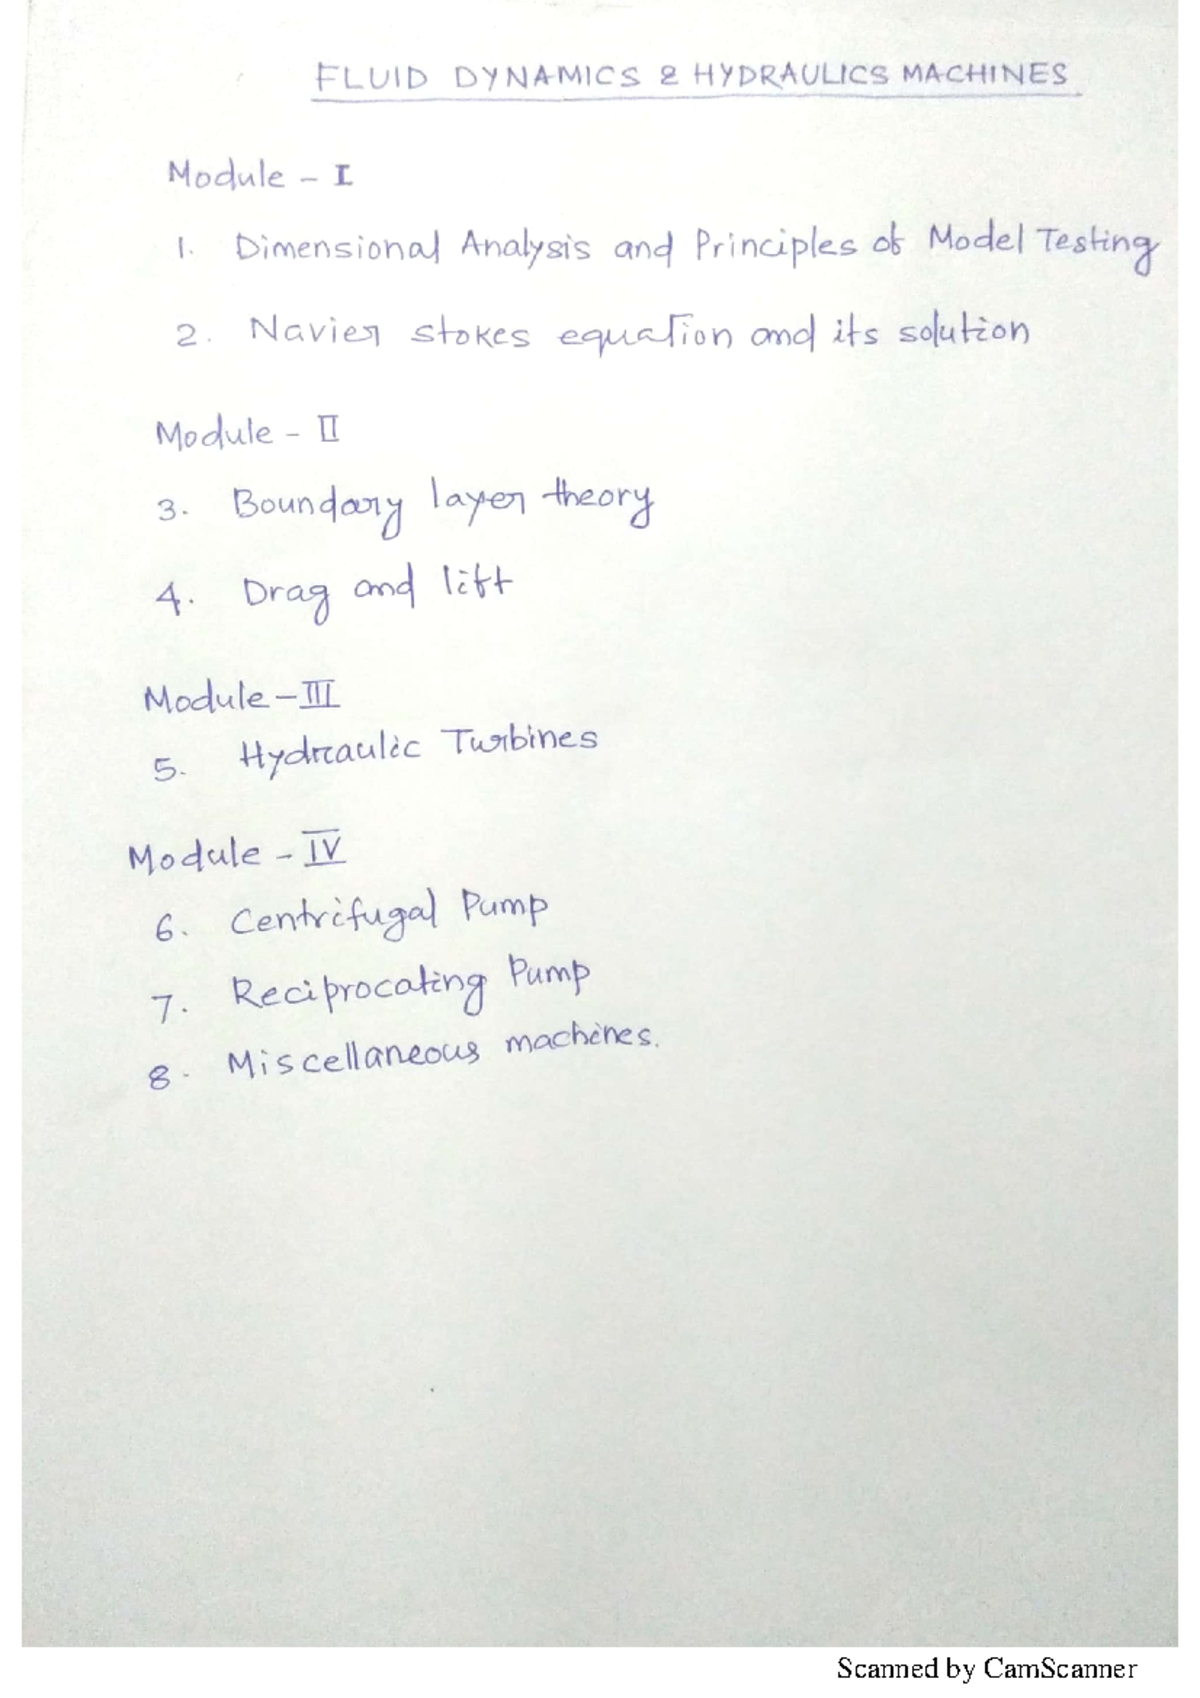 FLUID DYNAMICS & HYDRAULICS MACHINES
Module - I
1. Dimensional Analysis and Principles of Model Testing
2. Navier stokes equation and its solution
Module - II
3. Boundary layer theory
4. Drag and lift
Module - III
5. Hydraulic Turbines
Module - IV
6. Centrifugal Pump
7. Reciprocating Pump
8. Miscellaneous machines.
Scanned by CamScanner